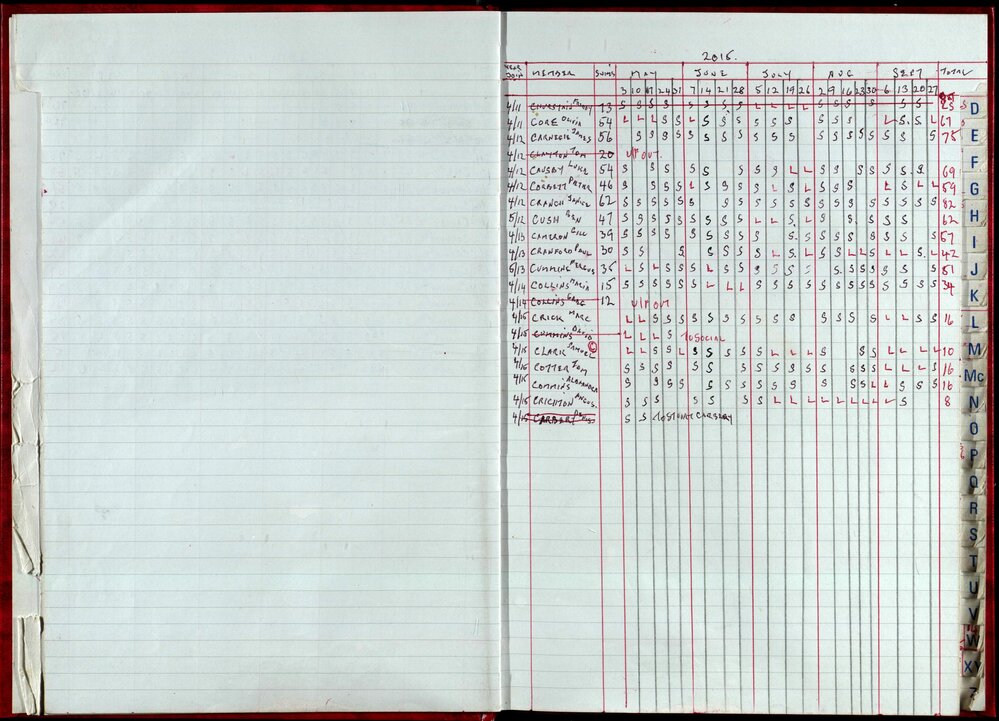 2015.
YEAR JOIN MEMBER SWIMS MAY JUNE JULY AUG SEPT TOTAL
3 10 17 24 31 7 14 21 28 5 12 19 26 2 9 16 23 30 6 13 20 27
4/11 43 S S S S S S S S L L L L S S S S S S S
4/11 CORE OLIVIA 54 L L L S S L S S S S S S S S S S L S S L 67
4/12 CARNEGIE JAMES 56 S S S S S S S S S S S S S S S S S S S 75
4/12 CLAYTON TOM 20 VIP OUT.
4/12 CAUSBY LUKE 54 S S S S S S S S L L S S S S S S S 69
4/12 CORBETT PETER 46 S S S S L S S S S L S L S S S L S L L 59
4/12 CRANCH JANICE 62 S S S S S S S S S S S S S S S S S S S S 82
5/12 CUSH BEN 47 S S S S S S S S S L L S L S S S S S S 62
4/13 CAMERON GILL 39 S S S S S S S S S S S S S S S S S S 57
4/13 CRAWFORD PAUL 30 S S S S S S S L S L S S L L S L L S L 42
5/13 CUMMINS FERGUS 35 L S L S S S L S S S S S S S S S S S S S S 51
4/14 COLLINS MARIA 15 S S S S S S L L L S S S S S S S S S S S S S 34
4/14 COLLINS 12 VIP OUT
4/15 CRICK MARC L L S S S S S S S S S S S S S S S L L S S 16
4/15 CUMMINS DAVID L L L S TO SOCIAL
4/15 CLARK SAMUEL © L L S S L S S S S S L L L S S S L L L L 10
4/15 COTTER TOM S S S S S S S S S S S S S S S S L L L S 16
4/15 COMMINS ALEXANDRA S S S S S S S S S S S S S L L S S S 16
4/15 CRICHTON ANGUS. L L S S S S S S S L L L L L L L L L S 8
4/15 S S
D
E
F
G
H
I
J
K
L
M
Mc
N
O
P
Q
R
S
T
U
V
W
XY
Z